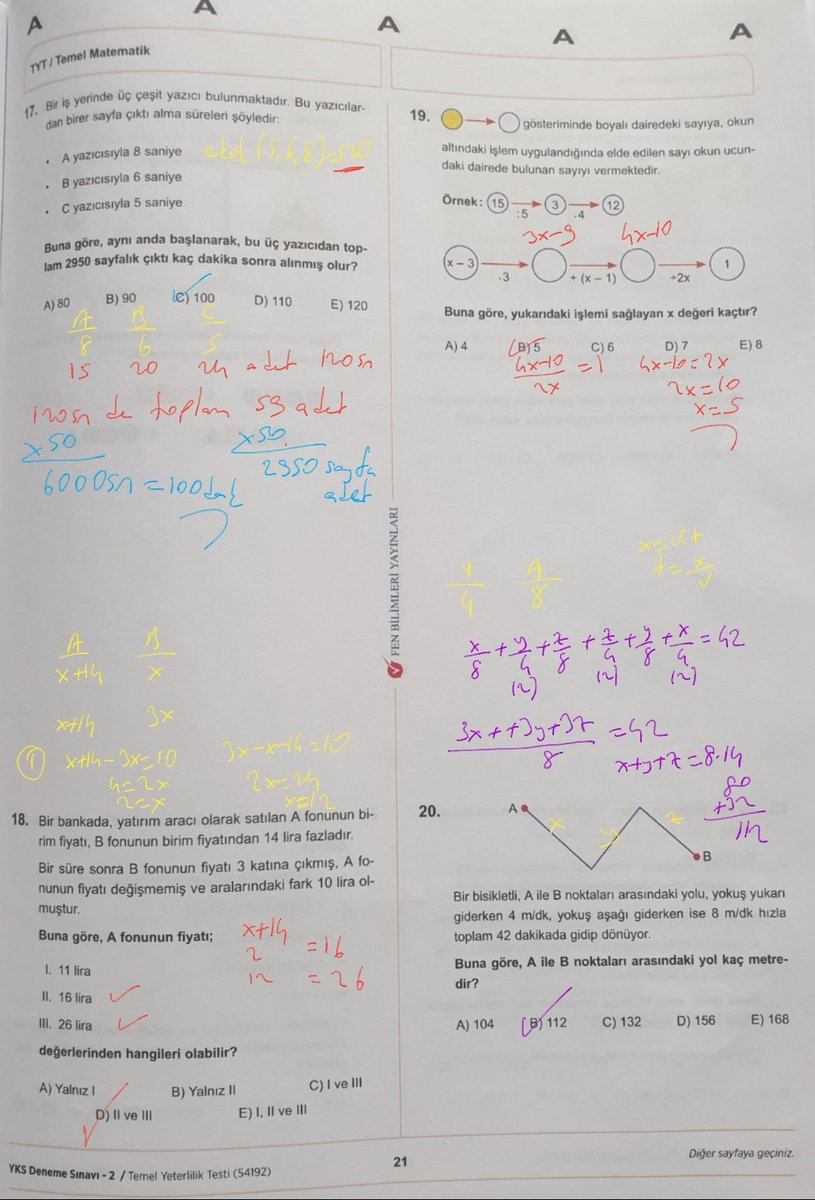 A A A A A
TYT / Temel Matematik
17. Bir iş yerinde üç çeşit yazıcı bulunmaktadır. Bu yazıcılar-
dan birer sayfa çıktı alma süreleri şöyledir:
• A yazıcısıyla 8 saniye
ekok (5,6,8)=120
• B yazıcısıyla 6 saniye
• C yazıcısıyla 5 saniye
Buna göre, aynı anda başlanarak, bu üç yazıcıdan top-
lam 2950 sayfalık çıktı kaç dakika sonra alınmış olur?
A) 80 B) 90 C) 100 D) 110 E) 120
A B C
8 6 5
15 20 24 adet 120sn
120sn de toplam 59 adet
x50 x50
6000sn = 100dak 2950 sayfa
adet
A B
x+14 x
x+14 3x
① x+14-3x=10 3x-x-14=10
4=2x 2x=24
2=x x=12
18. Bir bankada, yatırım aracı olarak satılan A fonunun bi-
rim fiyatı, B fonunun birim fiyatından 14 lira fazladır.
Bir süre sonra B fonunun fiyatı 3 katına çıkmış, A fo-
nunun fiyatı değişmemiş ve aralarındaki fark 10 lira ol-
muştur.
Buna göre, A fonunun fiyatı;
x+14
2 =16
12 =26
I. 11 lira
II. 16 lira
III. 26 lira
değerlerinden hangileri olabilir?
A) Yalnız I B) Yalnız II C) I ve III
D) II ve III E) I, II ve III
FEN BİLİMLERİ YAYINLARI
19. → gösteriminde boyalı dairedeki sayıya, okun
altındaki işlem uygulandığında elde edilen sayı okun ucun-
daki dairede bulunan sayıyı vermektedir.
Örnek: 15 → 3 → 12
:5 .4
3x-9 4x-10
x – 3 1
.3 + (x – 1) ÷2x
Buna göre, yukarıdaki işlemi sağlayan x değeri kaçtır?
A) 4 B) 5 C) 6 D) 7 E) 8
4x-10 =1 4x-10=2x
2x 2x=10
x=5
Y A x=v.t
4 8 t=x/v
x/8 + y/4 + z/8 + z/4 + y/8 + x/4 = 42
(2) (2) (2)
3x++3y+3z =42
8 x+y+z=8.14
80
+32
112
20. A x y z B
Bir bisikletli, A ile B noktaları arasındaki yolu, yokuş yukarı
giderken 4 m/dk, yokuş aşağı giderken ise 8 m/dk hızla
toplam 42 dakikada gidip dönüyor.
Buna göre, A ile B noktaları arasındaki yol kaç metre-
dir?
A) 104 B) 112 C) 132 D) 156 E) 168
YKS Deneme Sınavı - 2 / Temel Yeterlilik Testi (54192)
21
Diğer sayfaya geçiniz.